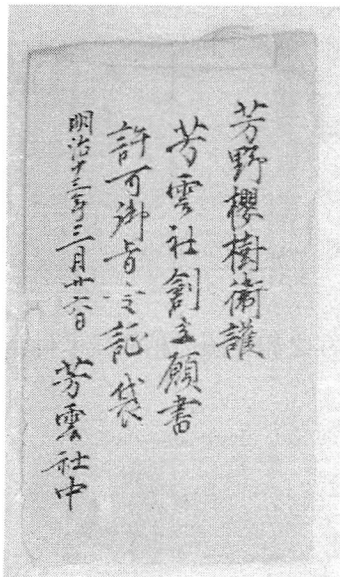 芳野櫻樹衛護
芳雲社創立願書
許可御旨令証袋
明治十三年三月廿六日 芳雲社中